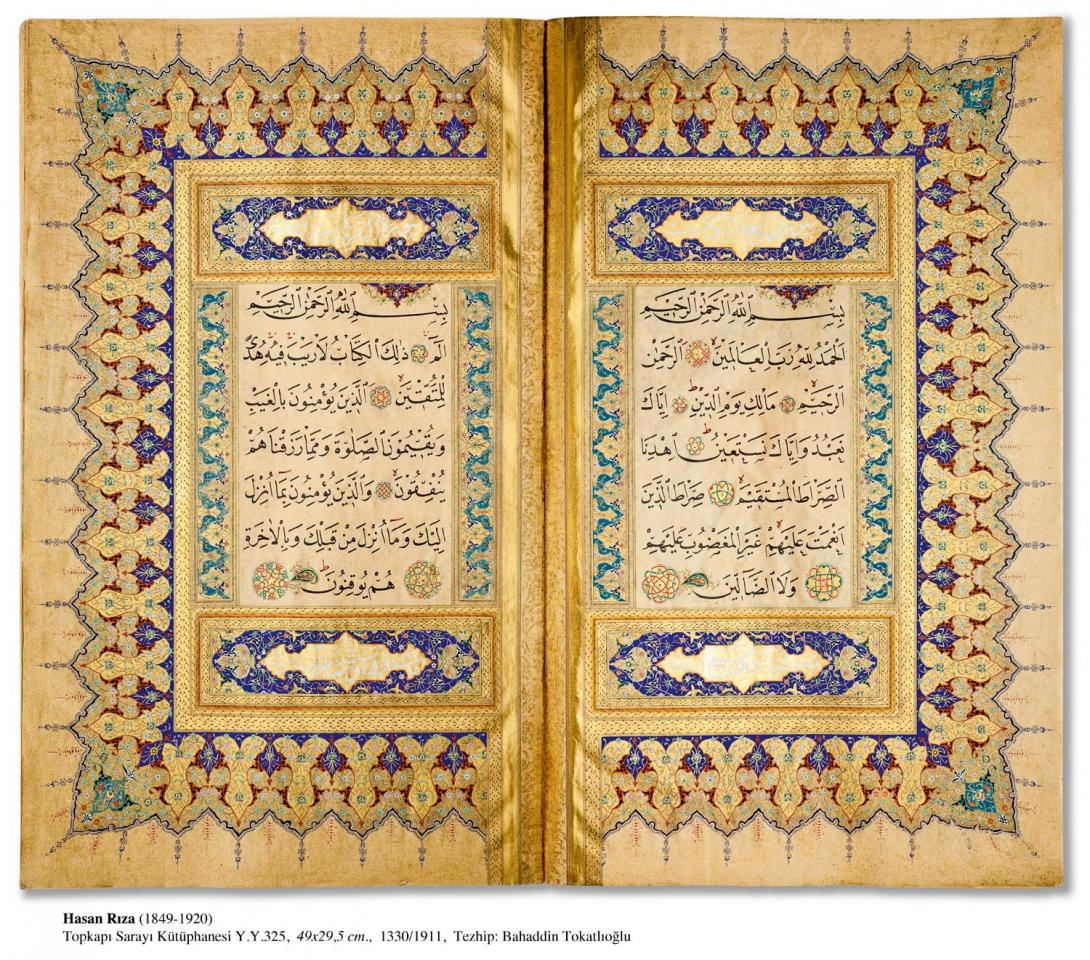 بِسْمِ اللهِ الرَّحْمٰنِ الرَّحِيمِ
اَلْحَمْدُ لِلّٰهِ رَبِّ الْعَالَمِينَ الرَّحْمٰنِ
الرَّحِيمِ مَالِكِ يَوْمِ الدِّينِ اِيَّاكَ
نَعْبُدُ وَاِيَّاكَ نَسْتَعِينُ اِهْدِنَا
الصِّرَاطَ الْمُسْتَقِيمَ صِرَاطَ الَّذِينَ
اَنْعَمْتَ عَلَيْهِمْ غَيْرِ الْمَغْضُوبِ عَلَيْهِمْ
وَلَا الضَّالِّينَ
بِسْمِ اللهِ الرَّحْمٰنِ الرَّحِيمِ
الٓمٓ ذٰلِكَ الْكِتَابُ لَا رَيْبَ فِيهِ هُدًى
لِلْمُتَّقِينَ اَلَّذِينَ يُؤْمِنُونَ بِالْغَيْبِ
وَيُقِيمُونَ الصَّلٰوةَ وَمِمَّا رَزَقْنَاهُمْ
يُنْفِقُونَ وَالَّذِينَ يُؤْمِنُونَ بِمَا اُنْزِلَ
اِلَيْكَ وَمَا اُنْزِلَ مِنْ قَبْلِكَ وَبِالْاٰخِرَةِ
هُمْ يُوقِنُونَ
Hasan Rıza (1849-1920)
Topkapı Sarayı Kütüphanesi Y.Y.325, 49x29,5 cm., 1330/1911, Tezhip: Bahaddin Tokatlıoğlu